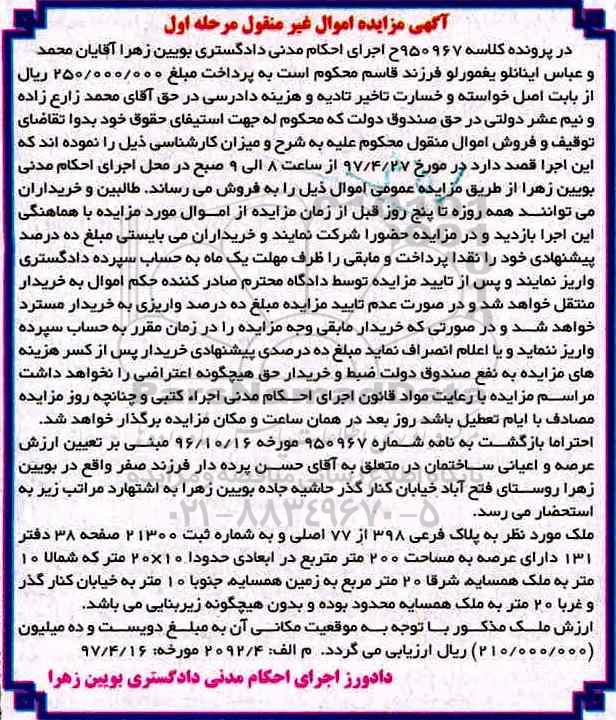 آگهی مزایده اموال غیر منقول مرحله اول
در پرونده کلاسه ۹۵۰۹۶۷ح اجرای احکام مدنی دادگستری بویین زهرا آقایان محمد
و عباس اینانلو یغمورلو فرزند قاسم محکوم است به پرداخت مبلغ ۲۵۰/۰۰۰/۰۰۰ ریال
از بابت اصل خواسته و خسارت تاخیر تادیه و هزینه دادرسی در حق آقای محمد زارع زاده
و نیم عشر دولتی در حق صندوق دولت که محکوم له جهت استیفای حقوق خود بدوا تقاضای
توقیف و فروش اموال منقول محکوم علیه به شرح و میزان کارشناسی ذیل را نموده اند که
این اجرا قصد دارد در مورخ ۹۷/۴/۲۷ از ساعت ۸ الی ۹ صبح در محل اجرای احکام مدنی
بویین زهرا از طریق مزایده عمومی اموال ذیل را به فروش می رساند. طالبین و خریداران
می توانند همه روزه تا پنج روز قبل از زمان مزایده از اموال مورد مزایده با هماهنگی
این اجرا بازدید و در مزایده حضورا شرکت نمایند و خریداران می بایستی مبلغ ده درصد
پیشنهادی خود را نقدا پرداخت و مابقی را ظرف مهلت یک ماه به حساب سپرده دادگستری
واریز نمایند و پس از تایید مزایده توسط دادگاه محترم صادر کننده حکم اموال به خریدار
منتقل خواهد شد و در صورت عدم تایید مزایده مبلغ ده درصد واریزی به خریدار مسترد
خواهد شد و در صورتی که خریدار مابقی وجه مزایده را در زمان مقرر به حساب سپرده
واریز ننماید و یا اعلام انصراف نماید مبلغ ده درصدی پیشنهادی خریدار پس از کسر هزینه
های مزایده به نفع صندوق دولت ضبط و خریدار حق هیچگونه اعتراضی را نخواهد داشت
مراسم مزایده با رعایت مواد قانون اجرای احکام مدنی اجراء کتبی و چنانچه روز مزایده
مصادف با ایام تعطیل باشد روز بعد در همان ساعت و مکان مزایده برگذار خواهد شد.
احتراما بازگشت به نامه شماره ۹۵۰۹۶۷ مورخه ۹۶/۱۰/۱۶ مبنی بر تعیین ارزش
عرصه و اعیانی ساختمان در متعلق به آقای حسن پرده دار فرزند صفر واقع در بویین
زهرا روستای فتح آباد خیابان کنار گذر حاشیه جاده بویین زهرا به اشتهارد مراتب زیر به
استحضار می رسد.
ملک مورد نظر به پلاک فرعی ۳۹۸ از ۷۷ اصلی و به شماره ثبت ۲۱۳۰۰ صفحه ۳۸ دفتر
۱۳۱ دارای عرصه به مساحت ۲۰۰ متر متربع در ابعادی حدودا ۱۰×۲۰ متر که شمالا ۱۰
متر به ملک همسایه، شرقا ۲۰ متر مربع به زمین همسایه، جنوبا ۱۰ متر به خیابان کنار گذر
و غربا ۲۰ متر به ملک همسایه محدود بوده و بدون هیچگونه زیربنایی می باشد.
ارزش ملک مذکور با توجه به موقعیت مکانی آن به مبلغ دویست و ده میلیون
(۲۱۰/۰۰۰/۰۰۰) ریال ارزیابی می گردد. م الف: ۲۰۹۲/۴ مورخه: ۹۷/۴/۱۶
دادورز اجرای احکام مدنی دادگستری بویین زهرا
۰۲۱-۸۸۳۴۹۶۷۰-۵